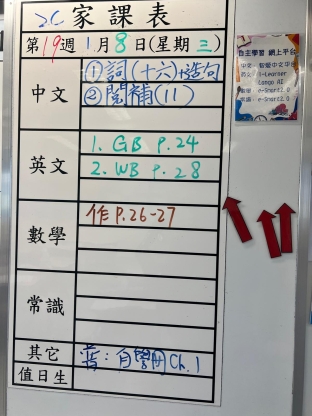 2C 家課表
第19週 1月8日(星期三)
中文
①詞(十六)+造句
②閱補(11)
英文
1. GB P.24
2. WB P.28
數學
作P.26-27
常識
其它
普: 自學冊Ch.1
值日生
自主學習 網上平台
中文: 智愛中文平台
英文: i-Learner
Longo AI
數學: e-Smart2.0
常識: e-Smart2.0